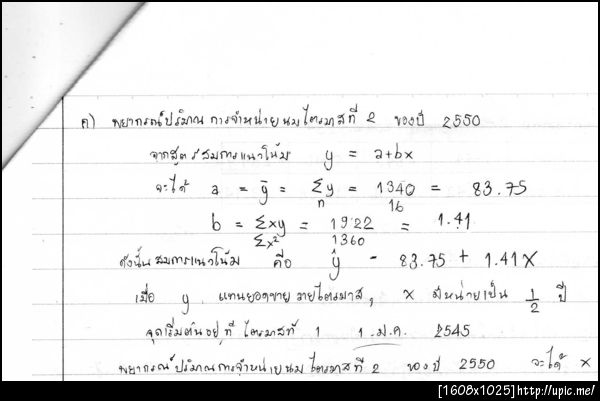 ค) พยากรณ์ปริมาณการจำหน่ายนมไตรมาสที่ 2 ของปี 2550
จากสูตรสมการแนวโน้ม y = a+bx
จะได้ a = ȳ = Σy = 1340 = 83.75
n 16
b = Σxy = 1922 = 1.41
Σx² 1360
ดังนั้นสมการแนวโน้ม คือ ŷ = 83.75 + 1.41X
เมื่อ y แทนยอดขายรายไตรมาส, x มีหน่วยเป็น 1/2 ปี
จุดเริ่มต้นอยู่ที่ ไตรมาสที่ 1 1 ม.ค. 2545
พยากรณ์ปริมาณการจำหน่ายนมไตรมาสที่ 2 ของปี 2550 จะได้ x
[1608x1025]http://upic.me/